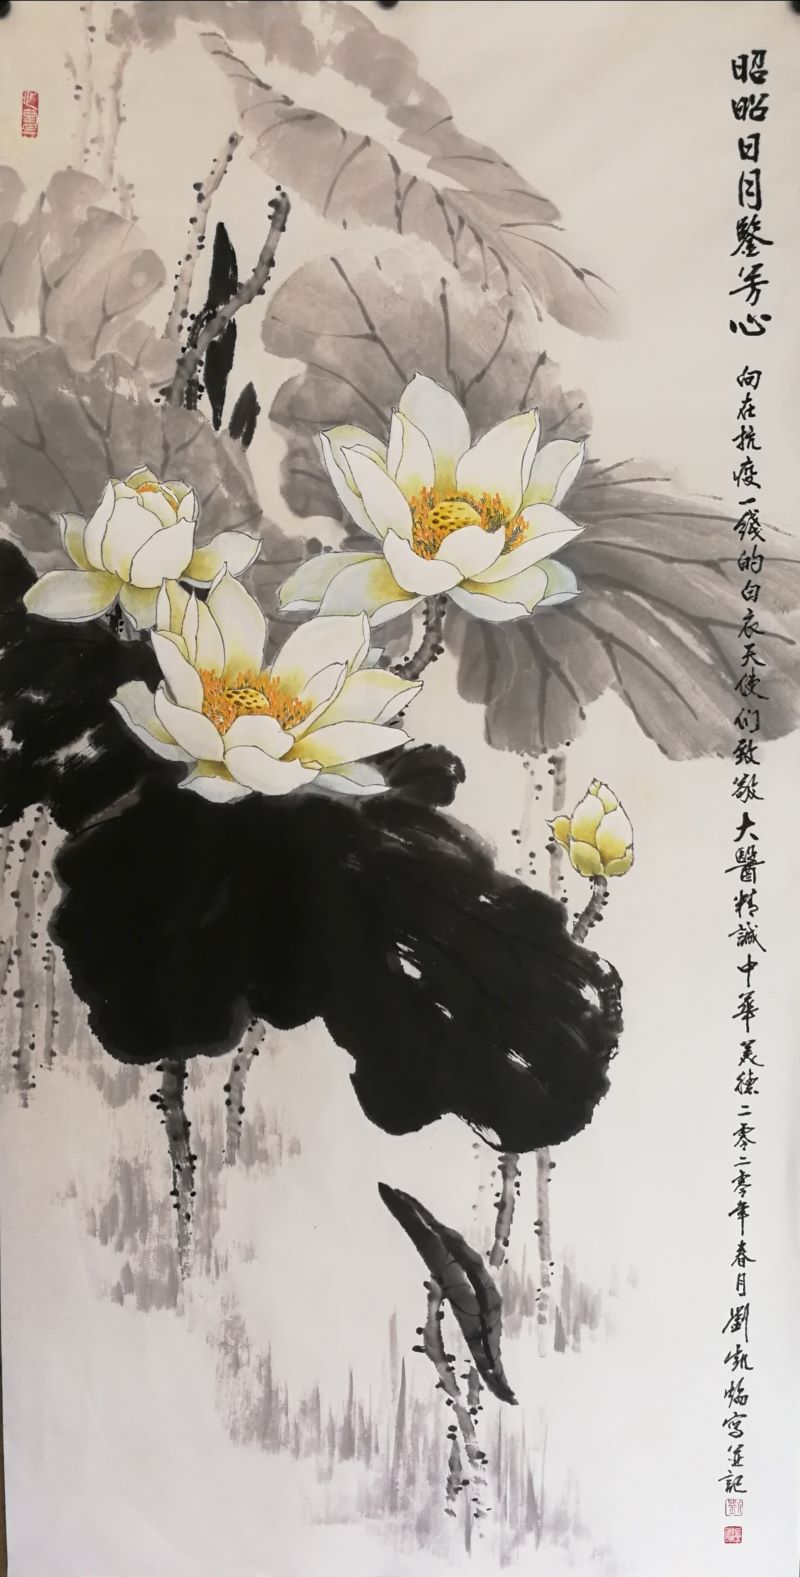 昭昭日月鑒芳心 向在抗疫一綫的白衣天使们致敬 大醫精誠 中華美德 二零二零年春月 劉凱 寫並記